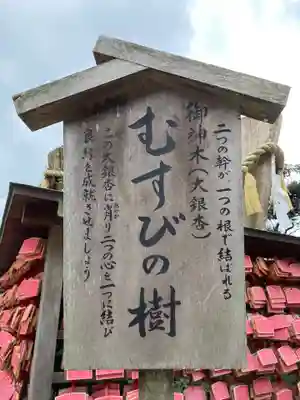 二つの幹が一つの根で結ばれる
御神木(大銀杏)
むすびの樹
この大銀杏に肖り二つの心を一つに結び
良縁を成就させましょう